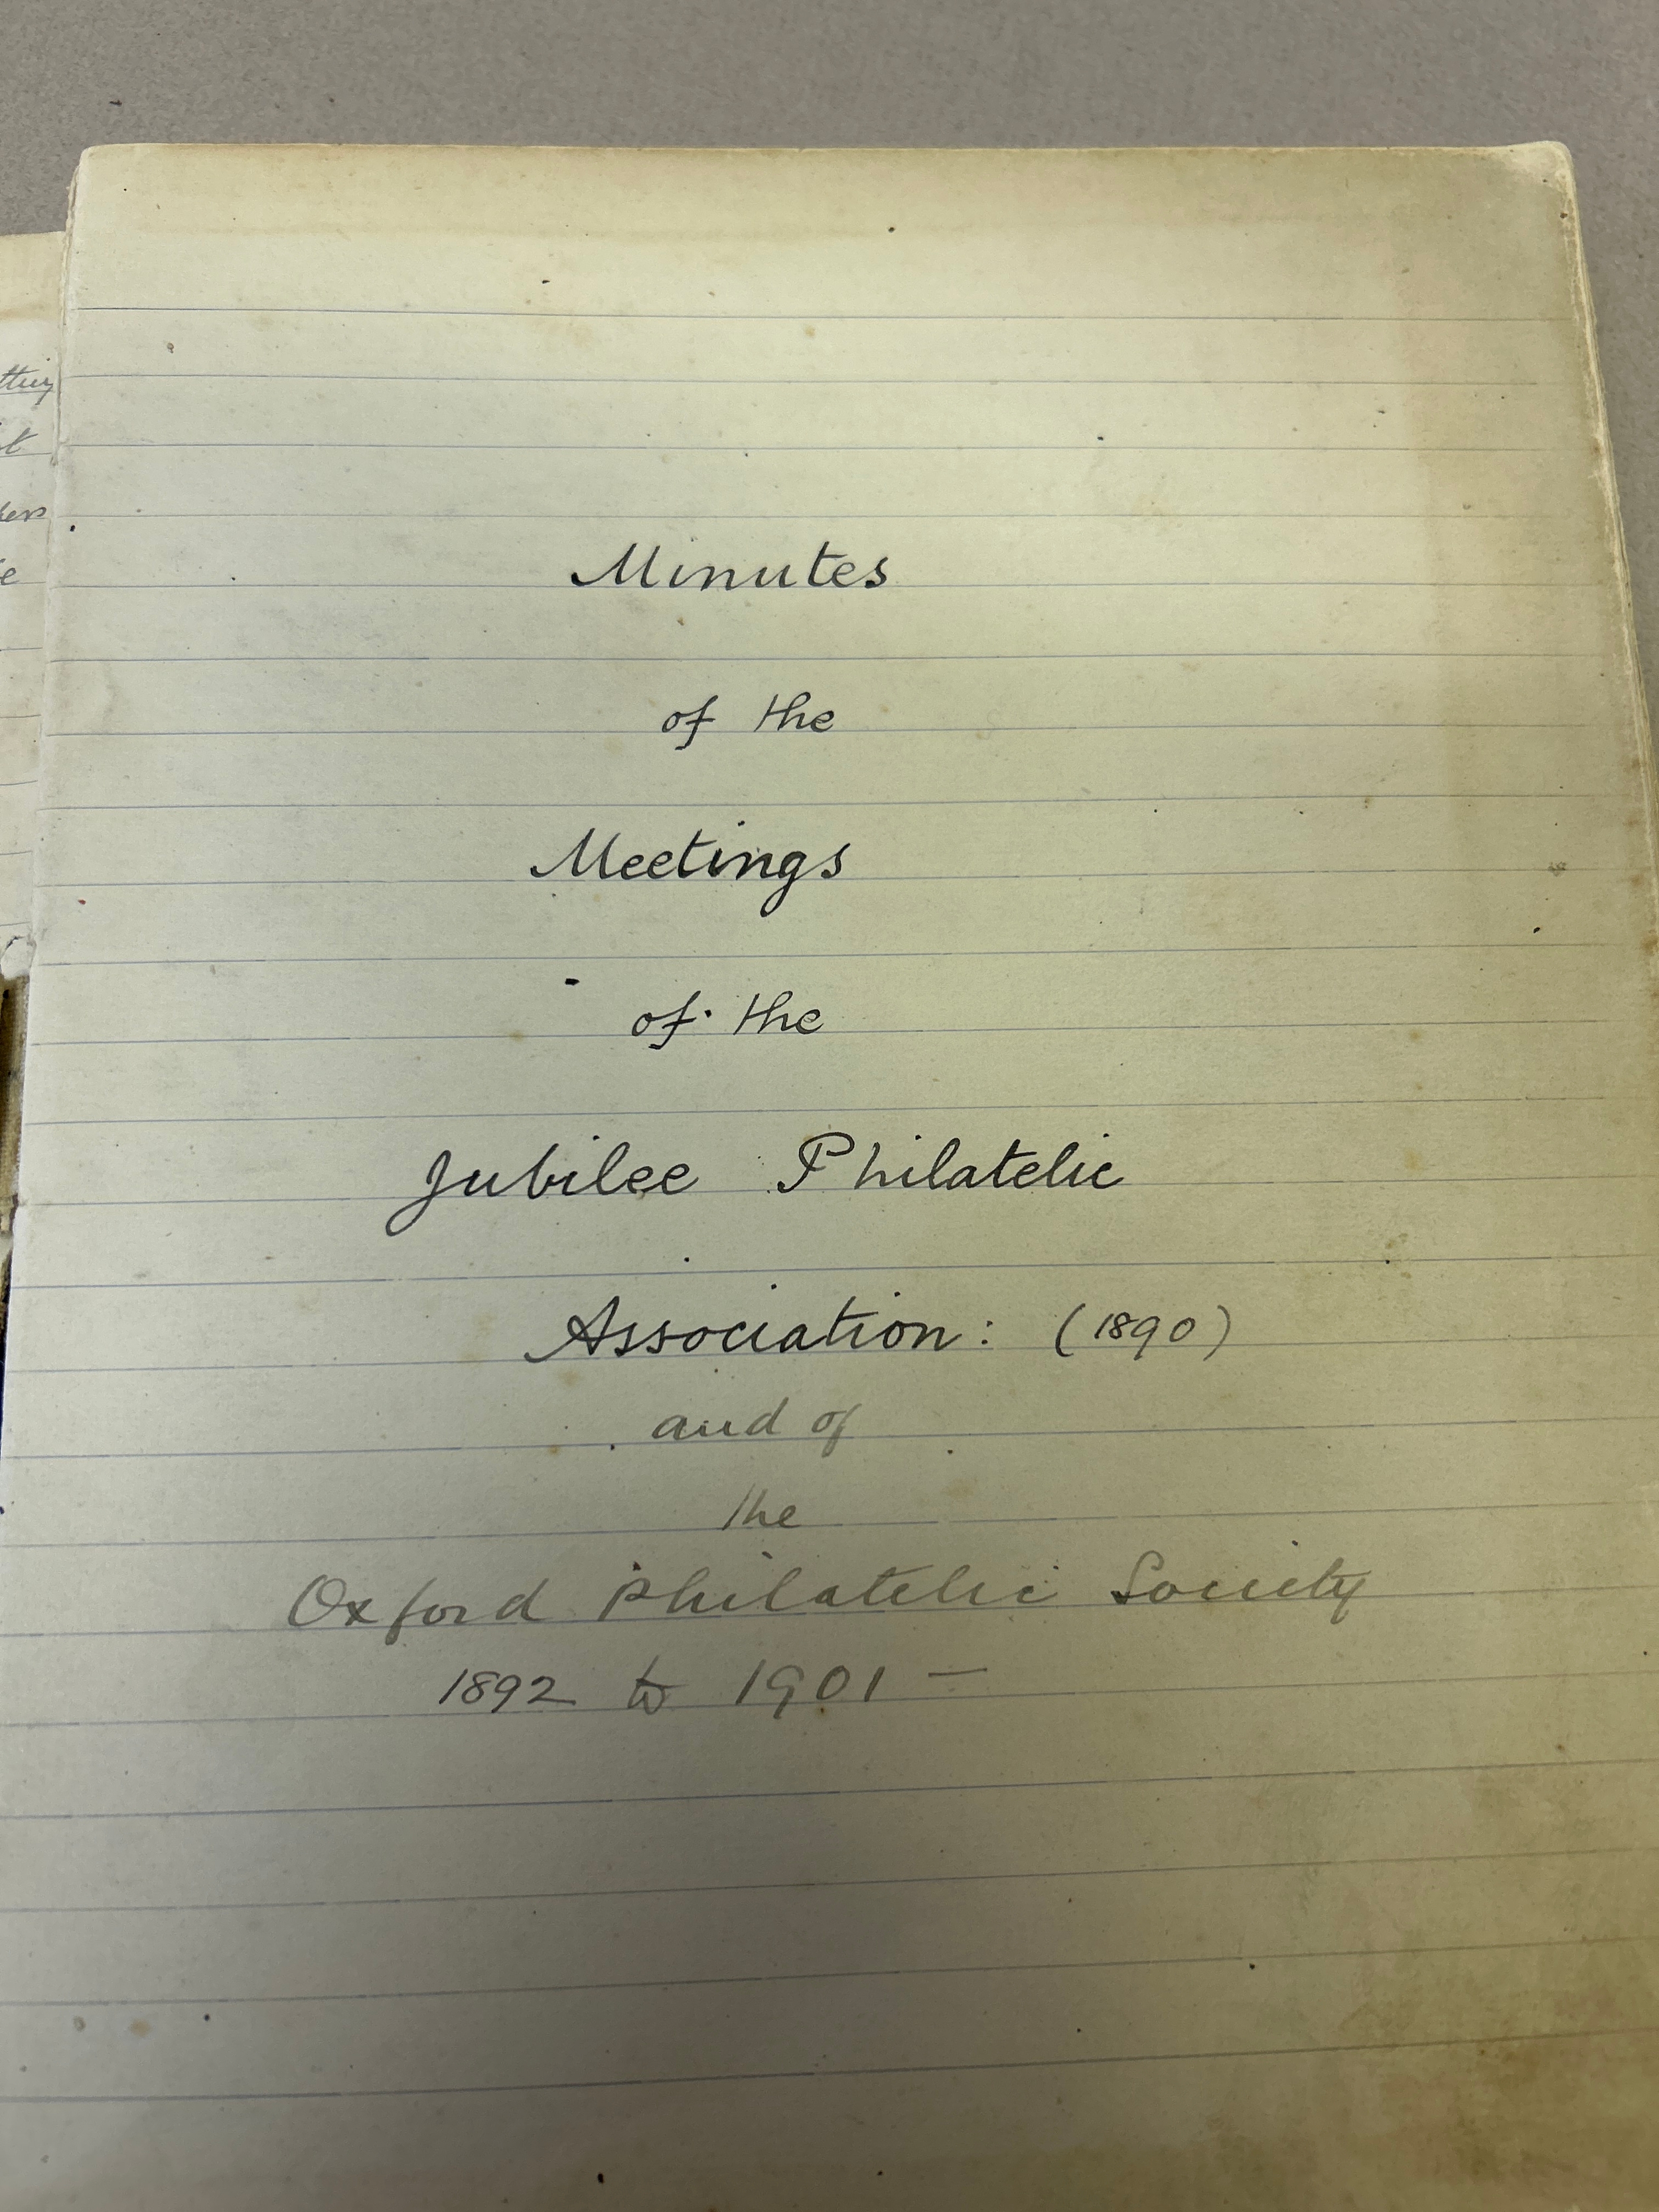 Minutes
of the
Meetings
of the
Jubilee Philatelic
Association: (1890)
and of
the
Oxford Philatelic Society
1892 to 1901 —